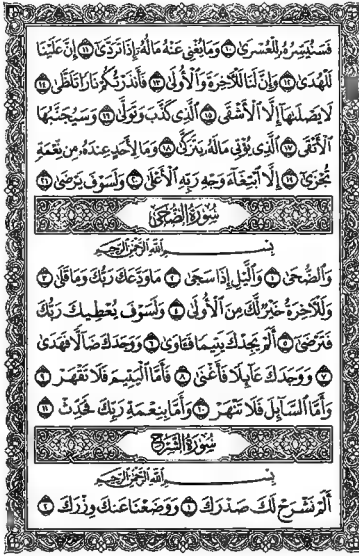 فَسَنُيَسِّرُهُۥ لِلْعُسْرَىٰ ١٠ وَمَا يُغْنِي عَنْهُ مَالُهُۥٓ إِذَا تَرَدَّىٰٓ ١١ إِنَّ عَلَيْنَا
لَلْهُدَىٰ ١٢ وَإِنَّ لَنَا لَلْءَاخِرَةَ وَٱلْأُولَىٰ ١٣ فَأَنذَرْتُكُمْ نَارًا تَلَظَّىٰ ١٤
لَا يَصْلَىٰهَآ إِلَّا ٱلْأَشْقَى ١٥ ٱلَّذِي كَذَّبَ وَتَوَلَّىٰ ١٦ وَسَيُجَنَّبُهَا
ٱلْأَتْقَى ١٧ ٱلَّذِي يُؤْتِي مَالَهُۥ يَتَزَكَّىٰ ١٨ وَمَا لِأَحَدٍ عِندَهُۥ مِن نِّعْمَةٍ
تُجْزَىٰٓ ١٩ إِلَّا ٱبْتِغَآءَ وَجْهِ رَبِّهِ ٱلْأَعْلَىٰ ٢٠ وَلَسَوْفَ يَرْضَىٰ ٢١
سُورَةُ الضُّحَىٰ
بِسْمِ ٱللَّهِ ٱلرَّحْمَٰنِ ٱلرَّحِيمِ
وَٱلضُّحَىٰ ١ وَٱلَّيْلِ إِذَا سَجَىٰ ٢ مَا وَدَّعَكَ رَبُّكَ وَمَا قَلَىٰ ٣
وَلَلْءَاخِرَةُ خَيْرٌ لَّكَ مِنَ ٱلْأُولَىٰ ٤ وَلَسَوْفَ يُعْطِيكَ رَبُّكَ
فَتَرْضَىٰٓ ٥ أَلَمْ يَجِدْكَ يَتِيمًا فَـَٔاوَىٰ ٦ وَوَجَدَكَ ضَآلًّا فَهَدَىٰ
٧ وَوَجَدَكَ عَآئِلًا فَأَغْنَىٰ ٨ فَأَمَّا ٱلْيَتِيمَ فَلَا تَقْهَرْ ٩
وَأَمَّا ٱلسَّآئِلَ فَلَا تَنْهَرْ ١٠ وَأَمَّا بِنِعْمَةِ رَبِّكَ فَحَدِّثْ ١١
سُورَةُ الشَّرْحِ
بِسْمِ ٱللَّهِ ٱلرَّحْمَٰنِ ٱلرَّحِيمِ
أَلَمْ نَشْرَحْ لَكَ صَدْرَكَ ١ وَوَضَعْنَا عَنكَ وِزْرَكَ ٢